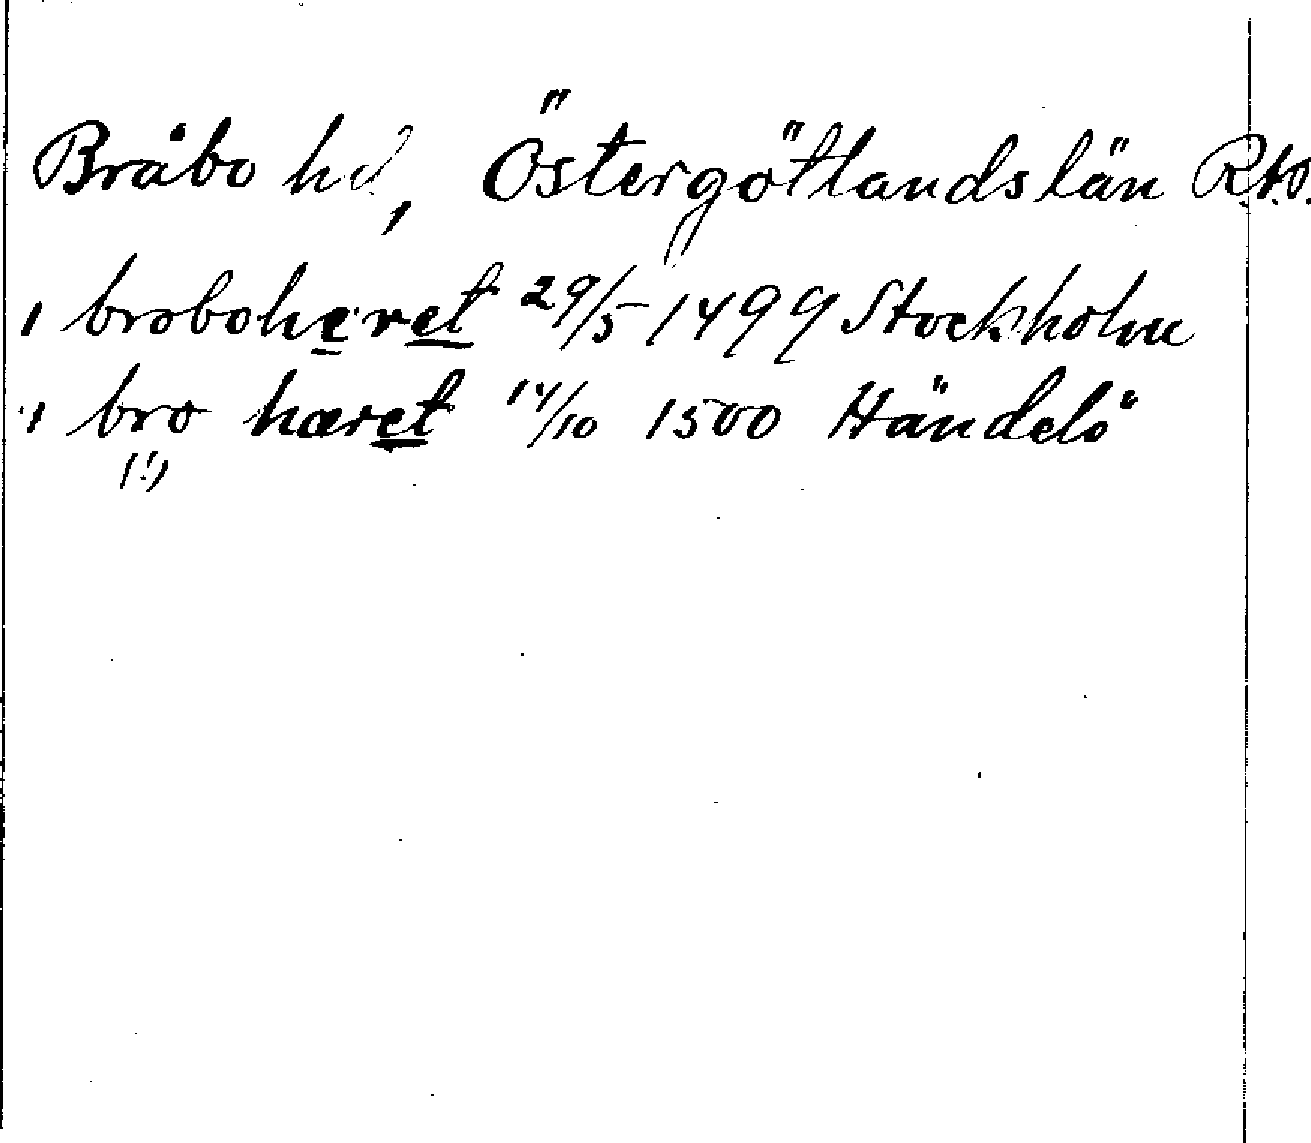 Bråbo hd, Östergötlands län RAO.
i broboheret 29/5 1499 Stockholm
i bro hæret 14/10 1500 Händelö
(!)